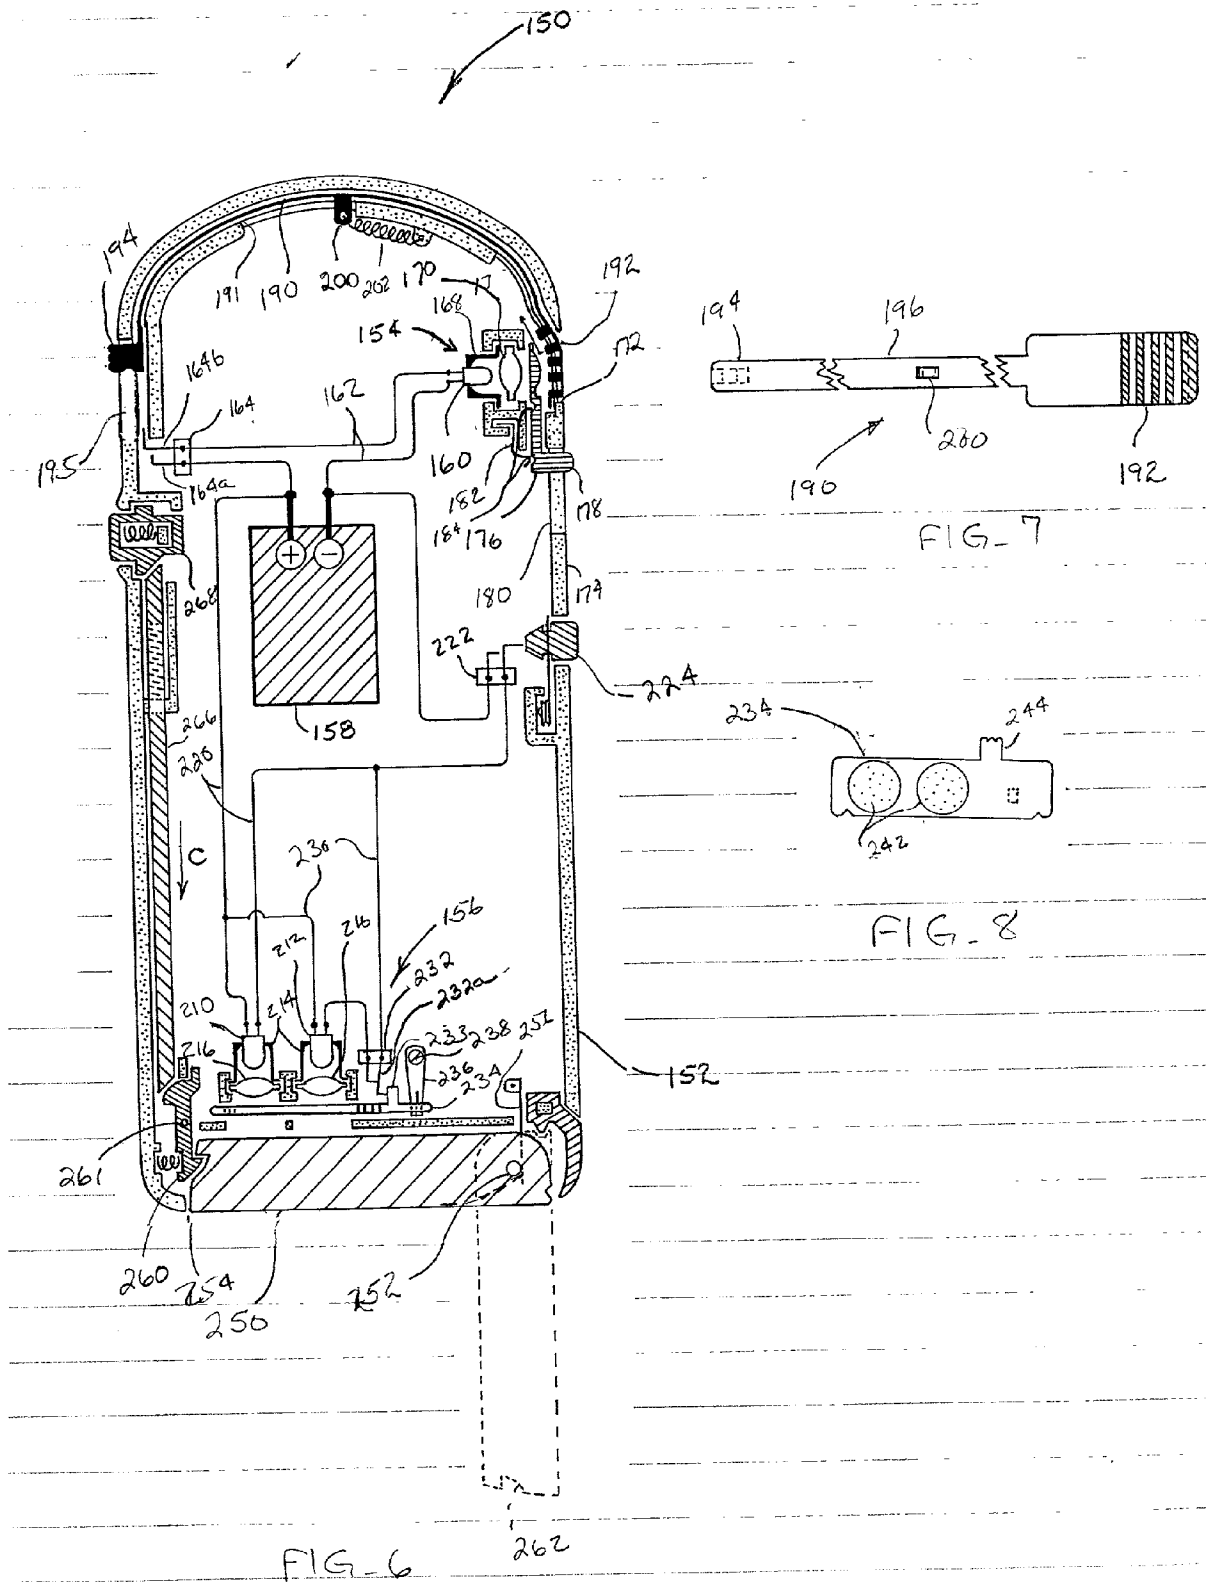 150
194
191
190
200
202
170
17
192
168
154
172
164b
164
162
195
164a
160
182
184
176
178
268
180
174
222
224
158
266
220
C
230
156
212
216
232
232a
210
214
233
238
252
216
236
234
152
261
260
254
250
252
262
FIG_6
194
196
200
190
192
FIG_7
234
244
242
FIG_8
+
−